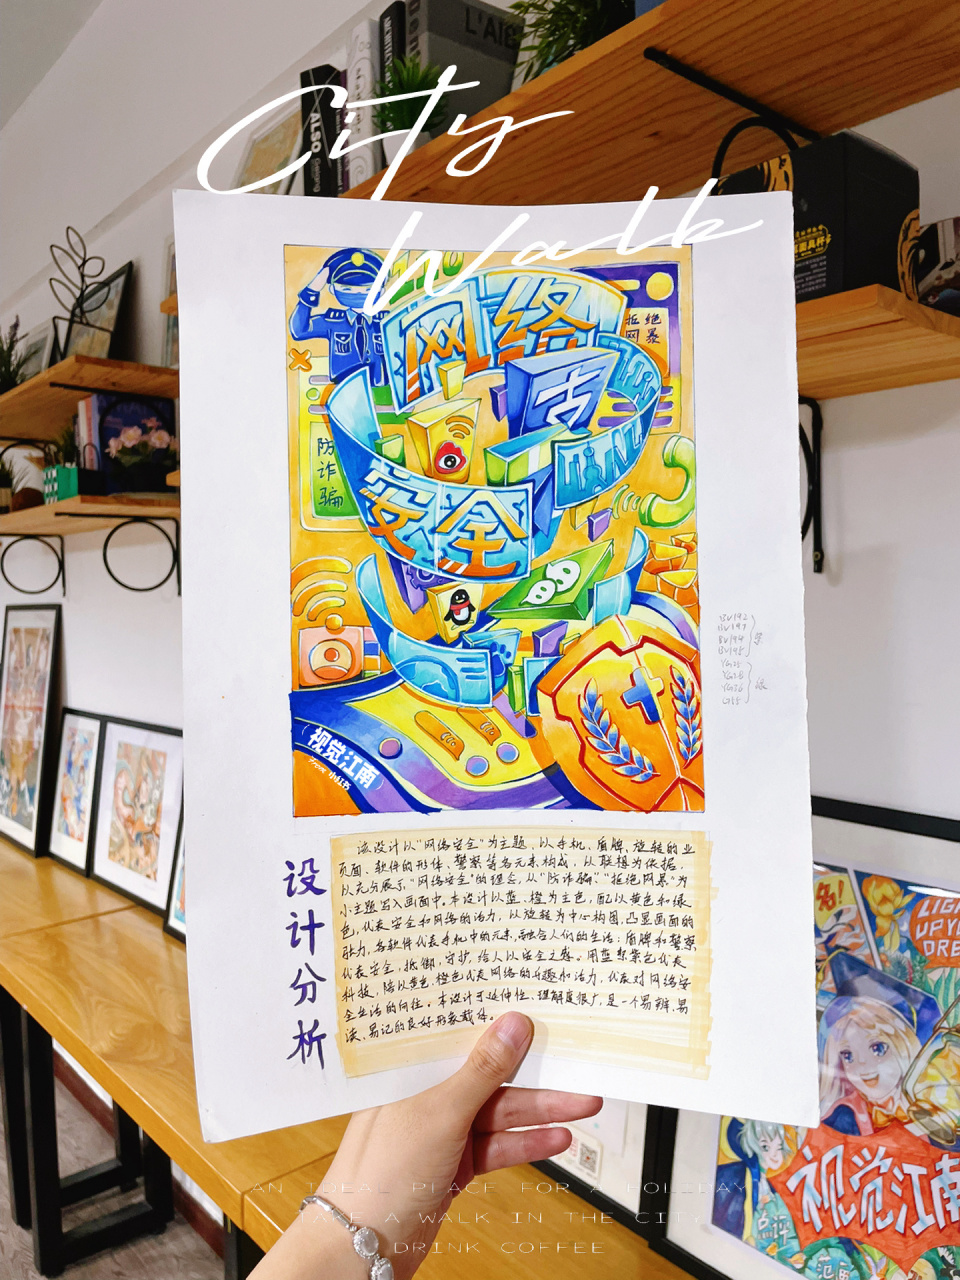 City
Walk
L'AIE
ALSO
网络
拒绝
网暴
防
诈
骗
安全
视觉江南
设计分析
该设计以“网络安全”为主题，以手机、盾牌、旋转的业
页面、软件的形体、警察等各元素构成，从联想为依据，
以充分展示“网络安全”的理念，从“防诈骗”、“拒绝网暴”为
小主题写入画面中。本设计以蓝、橙为主色，配以黄色和绿
色，代表安全和网络的活力，以旋转为中心构图，凸显画面的
张力，各软件代表手机中的元素，融合人们的生活；盾牌和警察
代表安全，抵御，守护，给人以安全之感。用蓝紫色代表
科技，陪以黄色、橙色代表网络的乐趣和活力，代表对网络安
全生活的向往。本设计可延伸性、理解度很广，是一个易辨、易
读、易记的良好形象载体。
BV192
BV197
BV194
BV195
YG25
YG36
名!
LIGH
UPYO
DRE
视觉江南
点评
AN IDEAL PLACE FOR A HOLIDAY
TAKE A WALK IN THE CITY
DRINK COFFEE